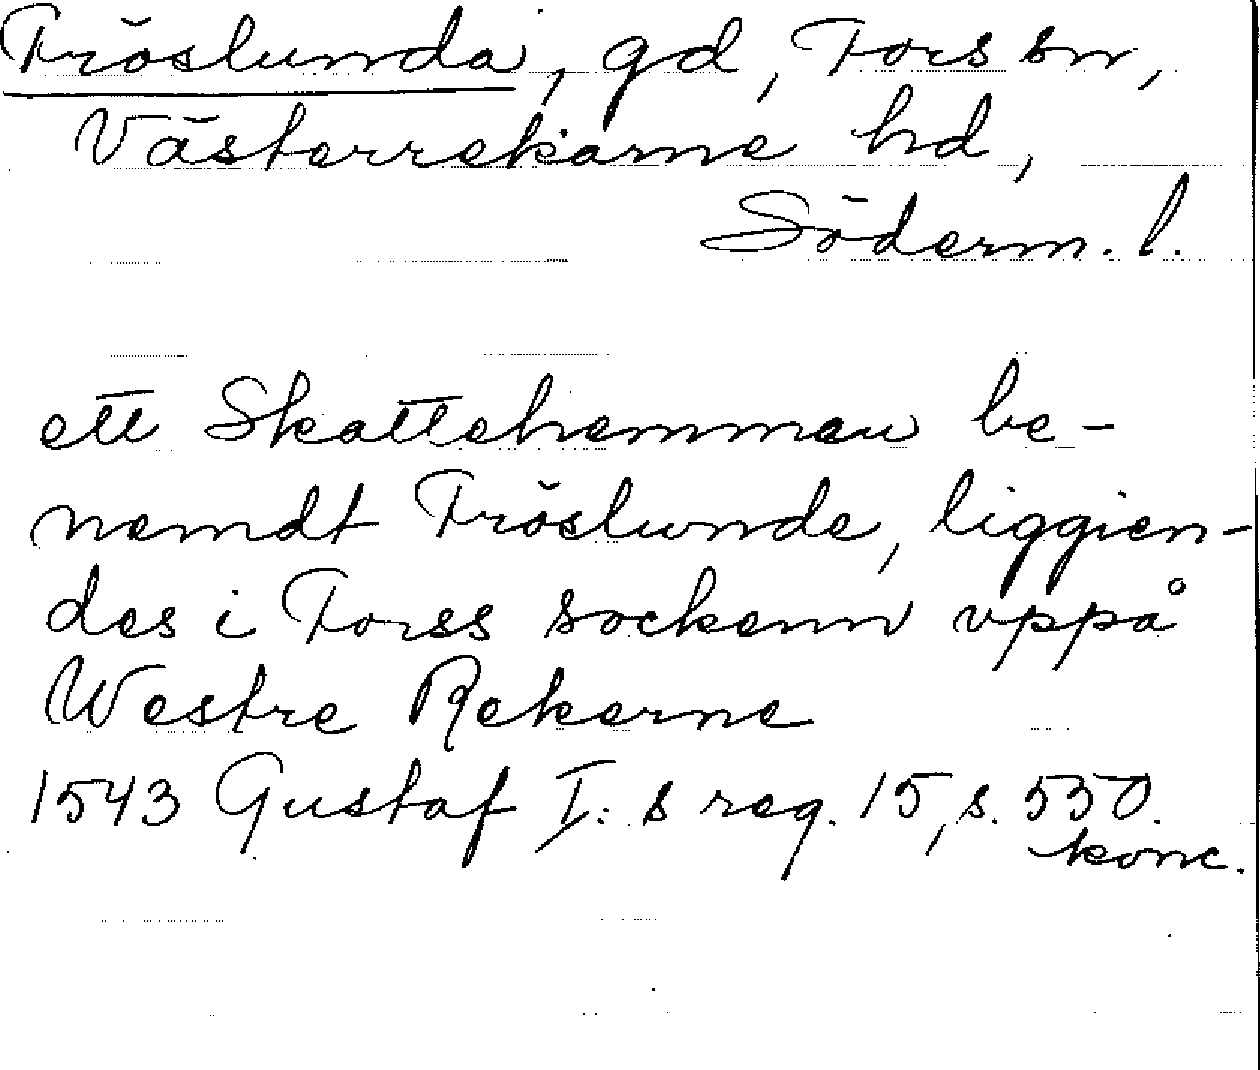 Fröslunda, gd, Fors sn,
Västerrekarne hd,
Söderm. l.
ett Skattehemman be-
nemdt Fröslunde, liggien-
des i Forss sockenn vppå
Westre Rekerne
1543 Gustaf I:s reg. 15, s. 550.
konc.